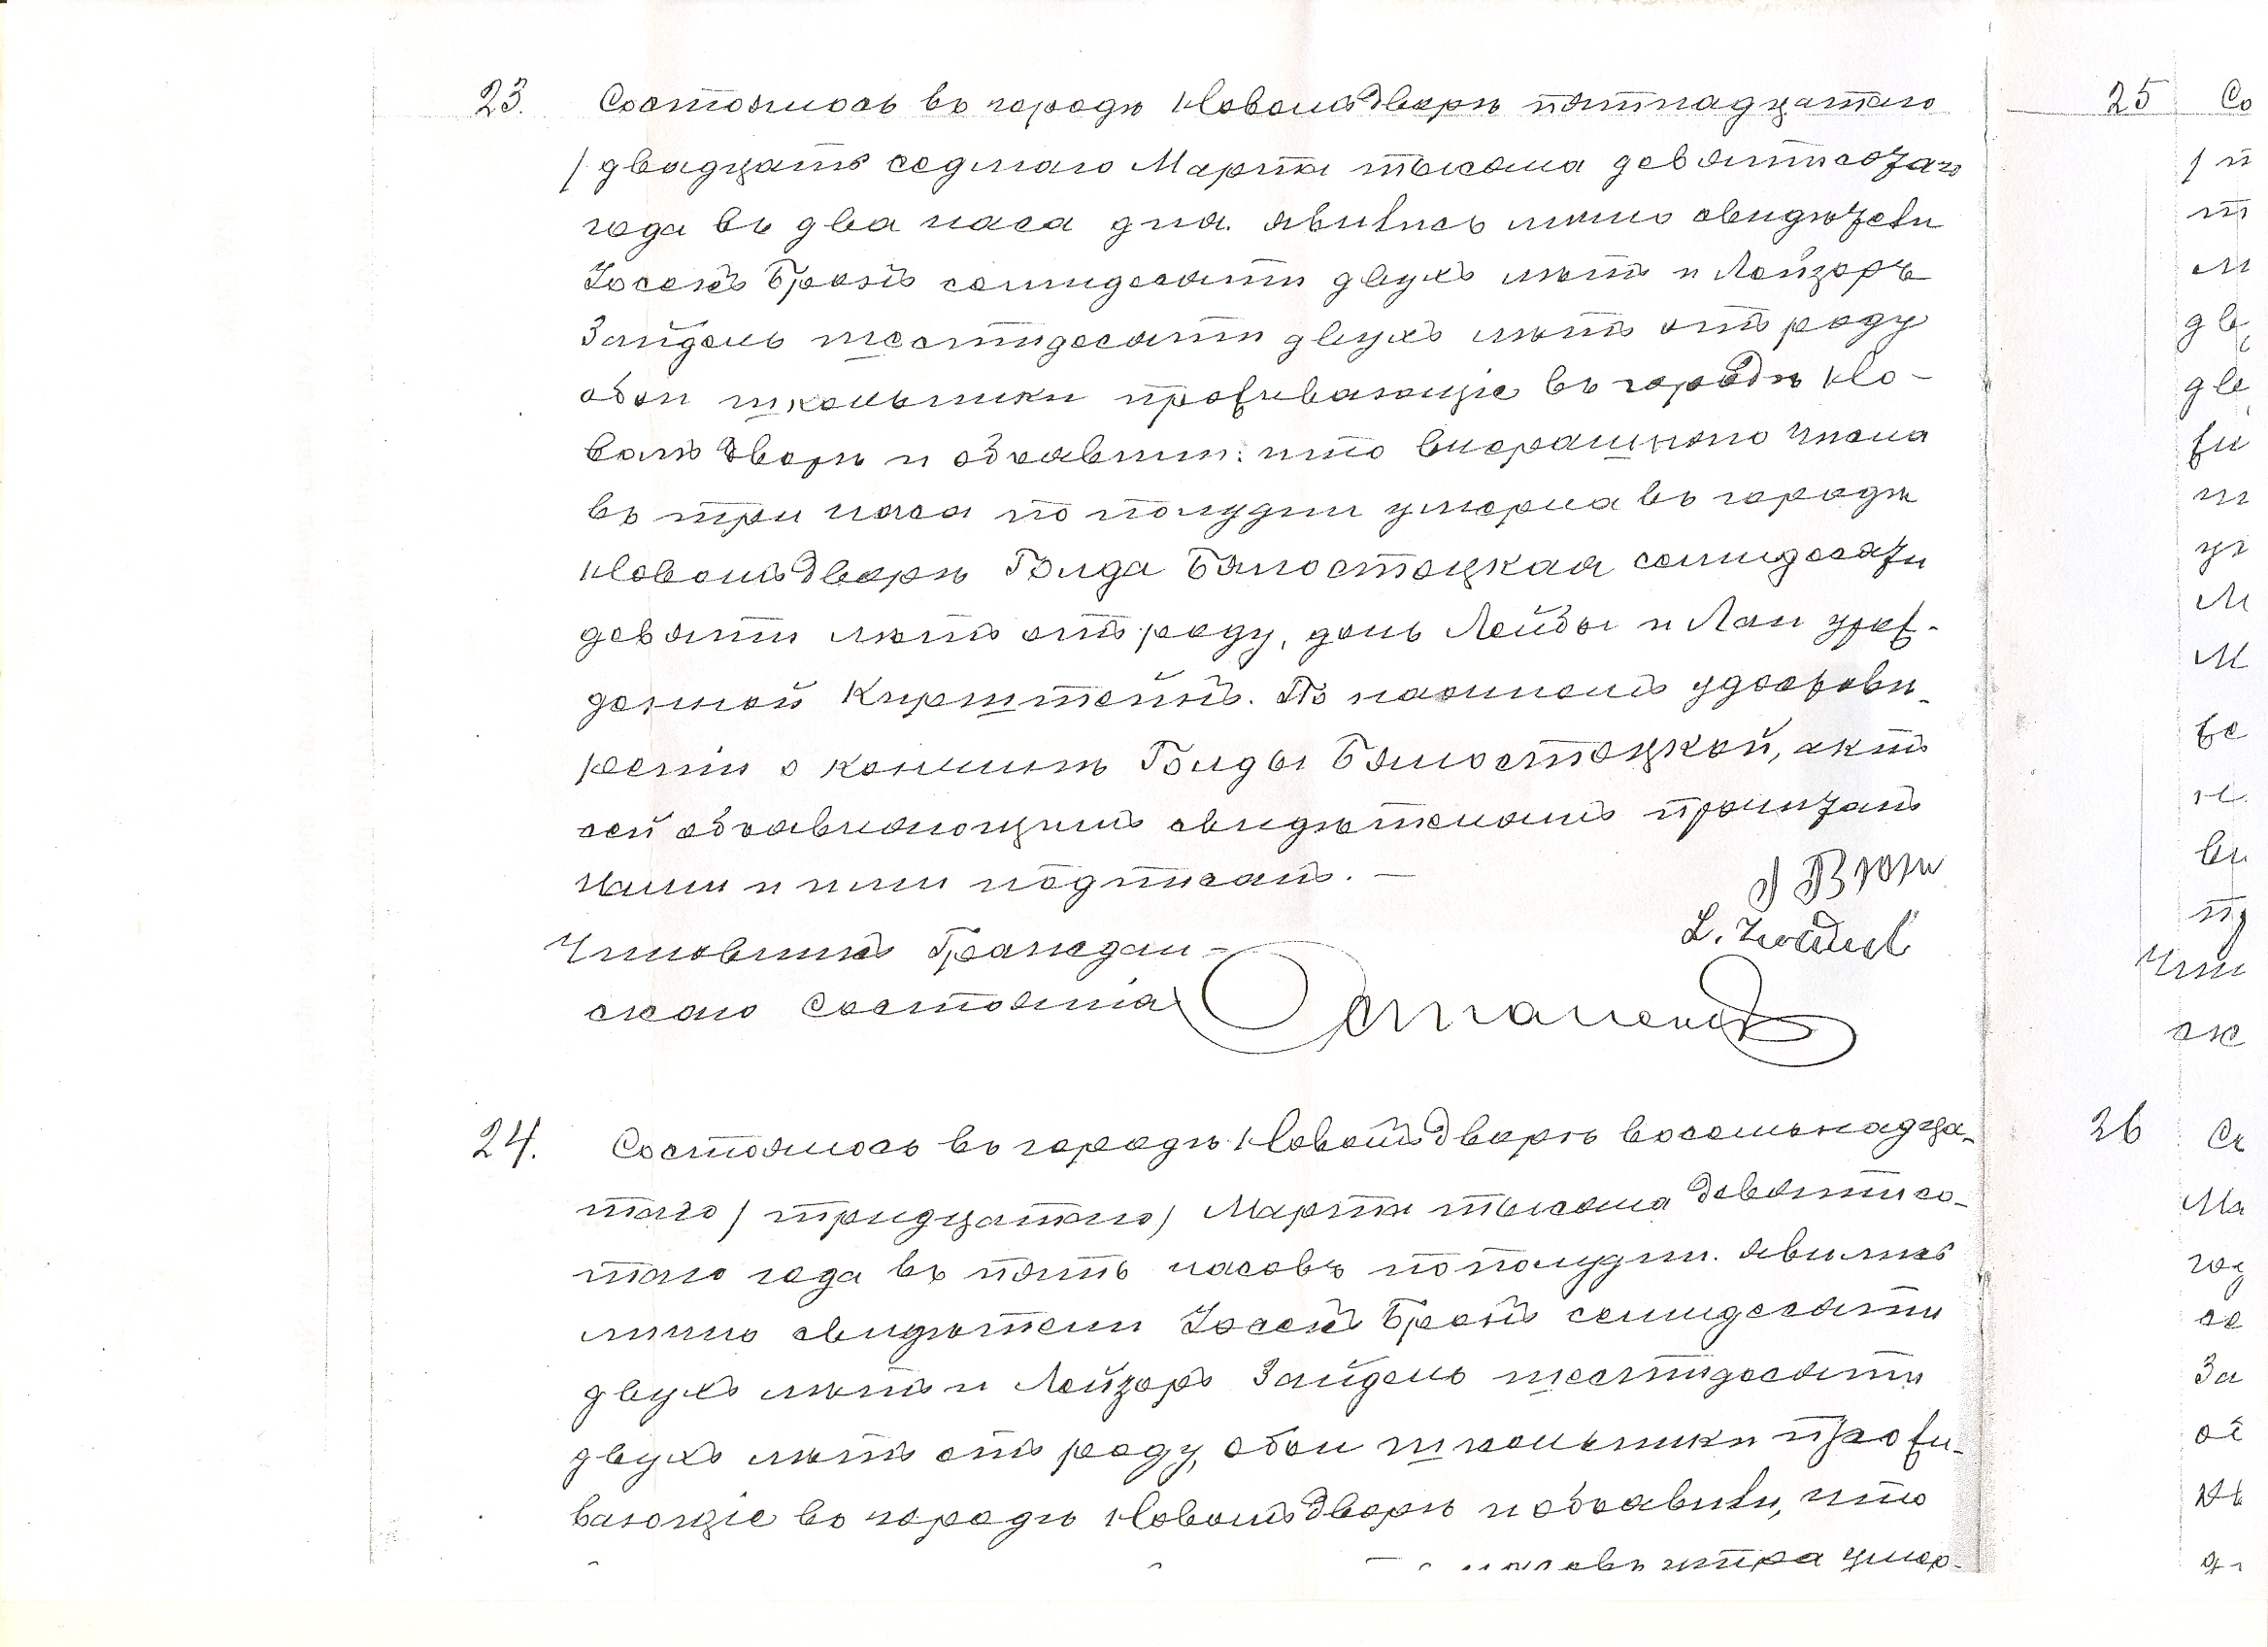 23. Состоялось въ городѣ Новомъ Дворѣ пятнадцатаго
/двадцать седмаго Марта тысяча девятисотаго
года въ два часа дня. явились лично свидѣтели
Іосекъ Бронъ семидесяти двухъ лѣтъ и Лейзоръ
Зайдель шестидесяти двухъ лѣтъ отъ роду
обои школьники проживающіе въ городѣ Но-
вомъ Дворѣ и объявили: что вчорашняго числа
въ три часа по полудни умерла въ городѣ
Новомъ Дворѣ Голда Бялостоцкая семидесяти
девяти лѣтъ отъ роду, дочь Лейбы и Лаи урож-
денной Кирштейнъ. По настномъ удостовѣ-
реніи о кончинѣ Голды Бялостоцкой, актъ
сей объявляющимъ свидѣтелямъ прочитанъ
Нами и ними подписанъ. —
J Bron
L. Zaidel
Чиновникъ Граждан-
скаго Состоянія
24. Состоялось въ городѣ Новомъ Дворѣ восемьнадца-
таго /тридцатаго/ Марта тысяча девятисо-
таго года въ пять часовъ по полудни. явились
лично свидѣтели Іосекъ Бронъ семидесяти
двухъ лѣтъ и Лейзоръ Зайдель шестидесяти
двухъ лѣтъ отъ роду, обои школьники прожи-
вающіе въ городѣ Новомъ Дворѣ и объявили, что
утра умер-
25 Со
26 Со